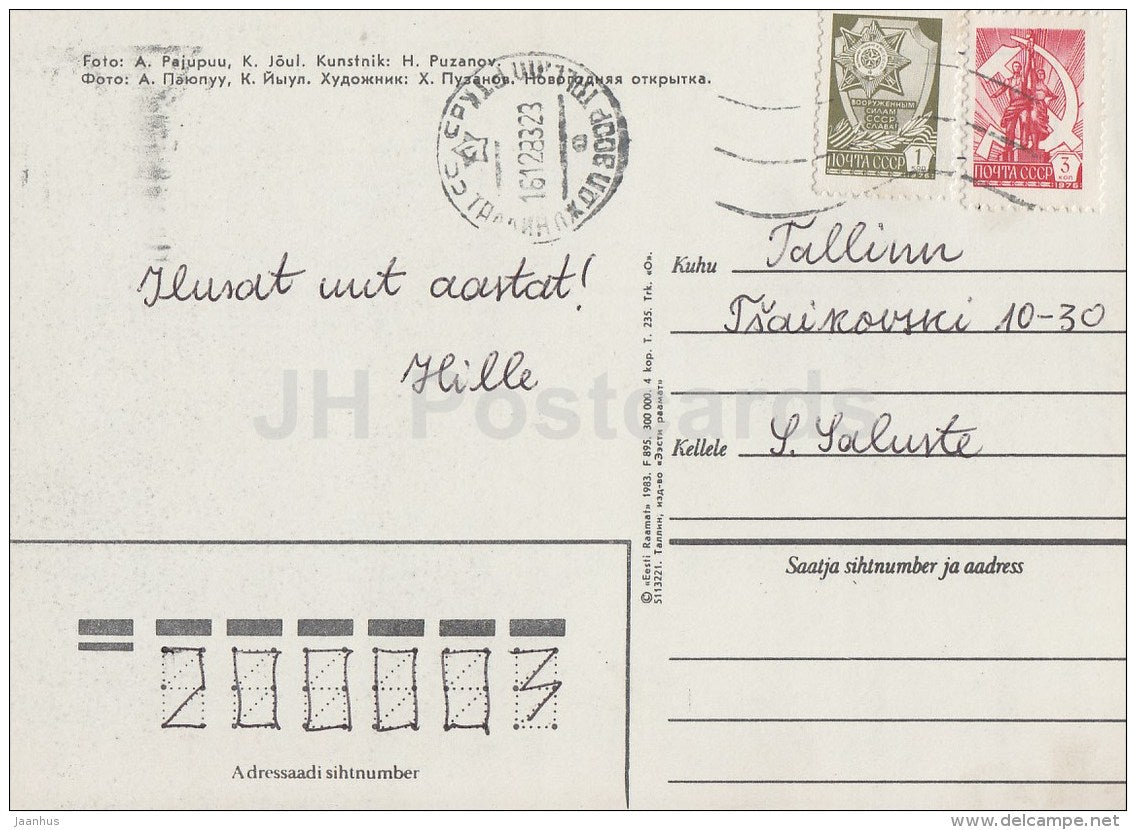 Foto: A. Pajupuu, K. Jõul. Kunstnik: H. Puzanov.
Фото: А. Паюпуу, К. Йыул. Художник: Х. Пузанов. Новогодняя открытка.
ВООРУЖЕННЫМ
СИЛАМ
СССР
СЛАВА!
ПОЧТА СССР 1
КОП
1976
ПОЧТА СССР 3
КОП
1976
16128323
Ilusat uut aastat!
Hille
Kuhu Tallinn
Tšaikovski 10-30
Kellele S. Saluste
JH Postcards
© «Eesti Raamat» 1983. F 895. 300 000. 4 kop. T. 235. Trk. «O».
5113221. Таллин, изд-во «Ээсти раамат»
Saatja sihtnumber ja aadress
200003
Adressaadi sihtnumber
Jaanhus
delcampe.net